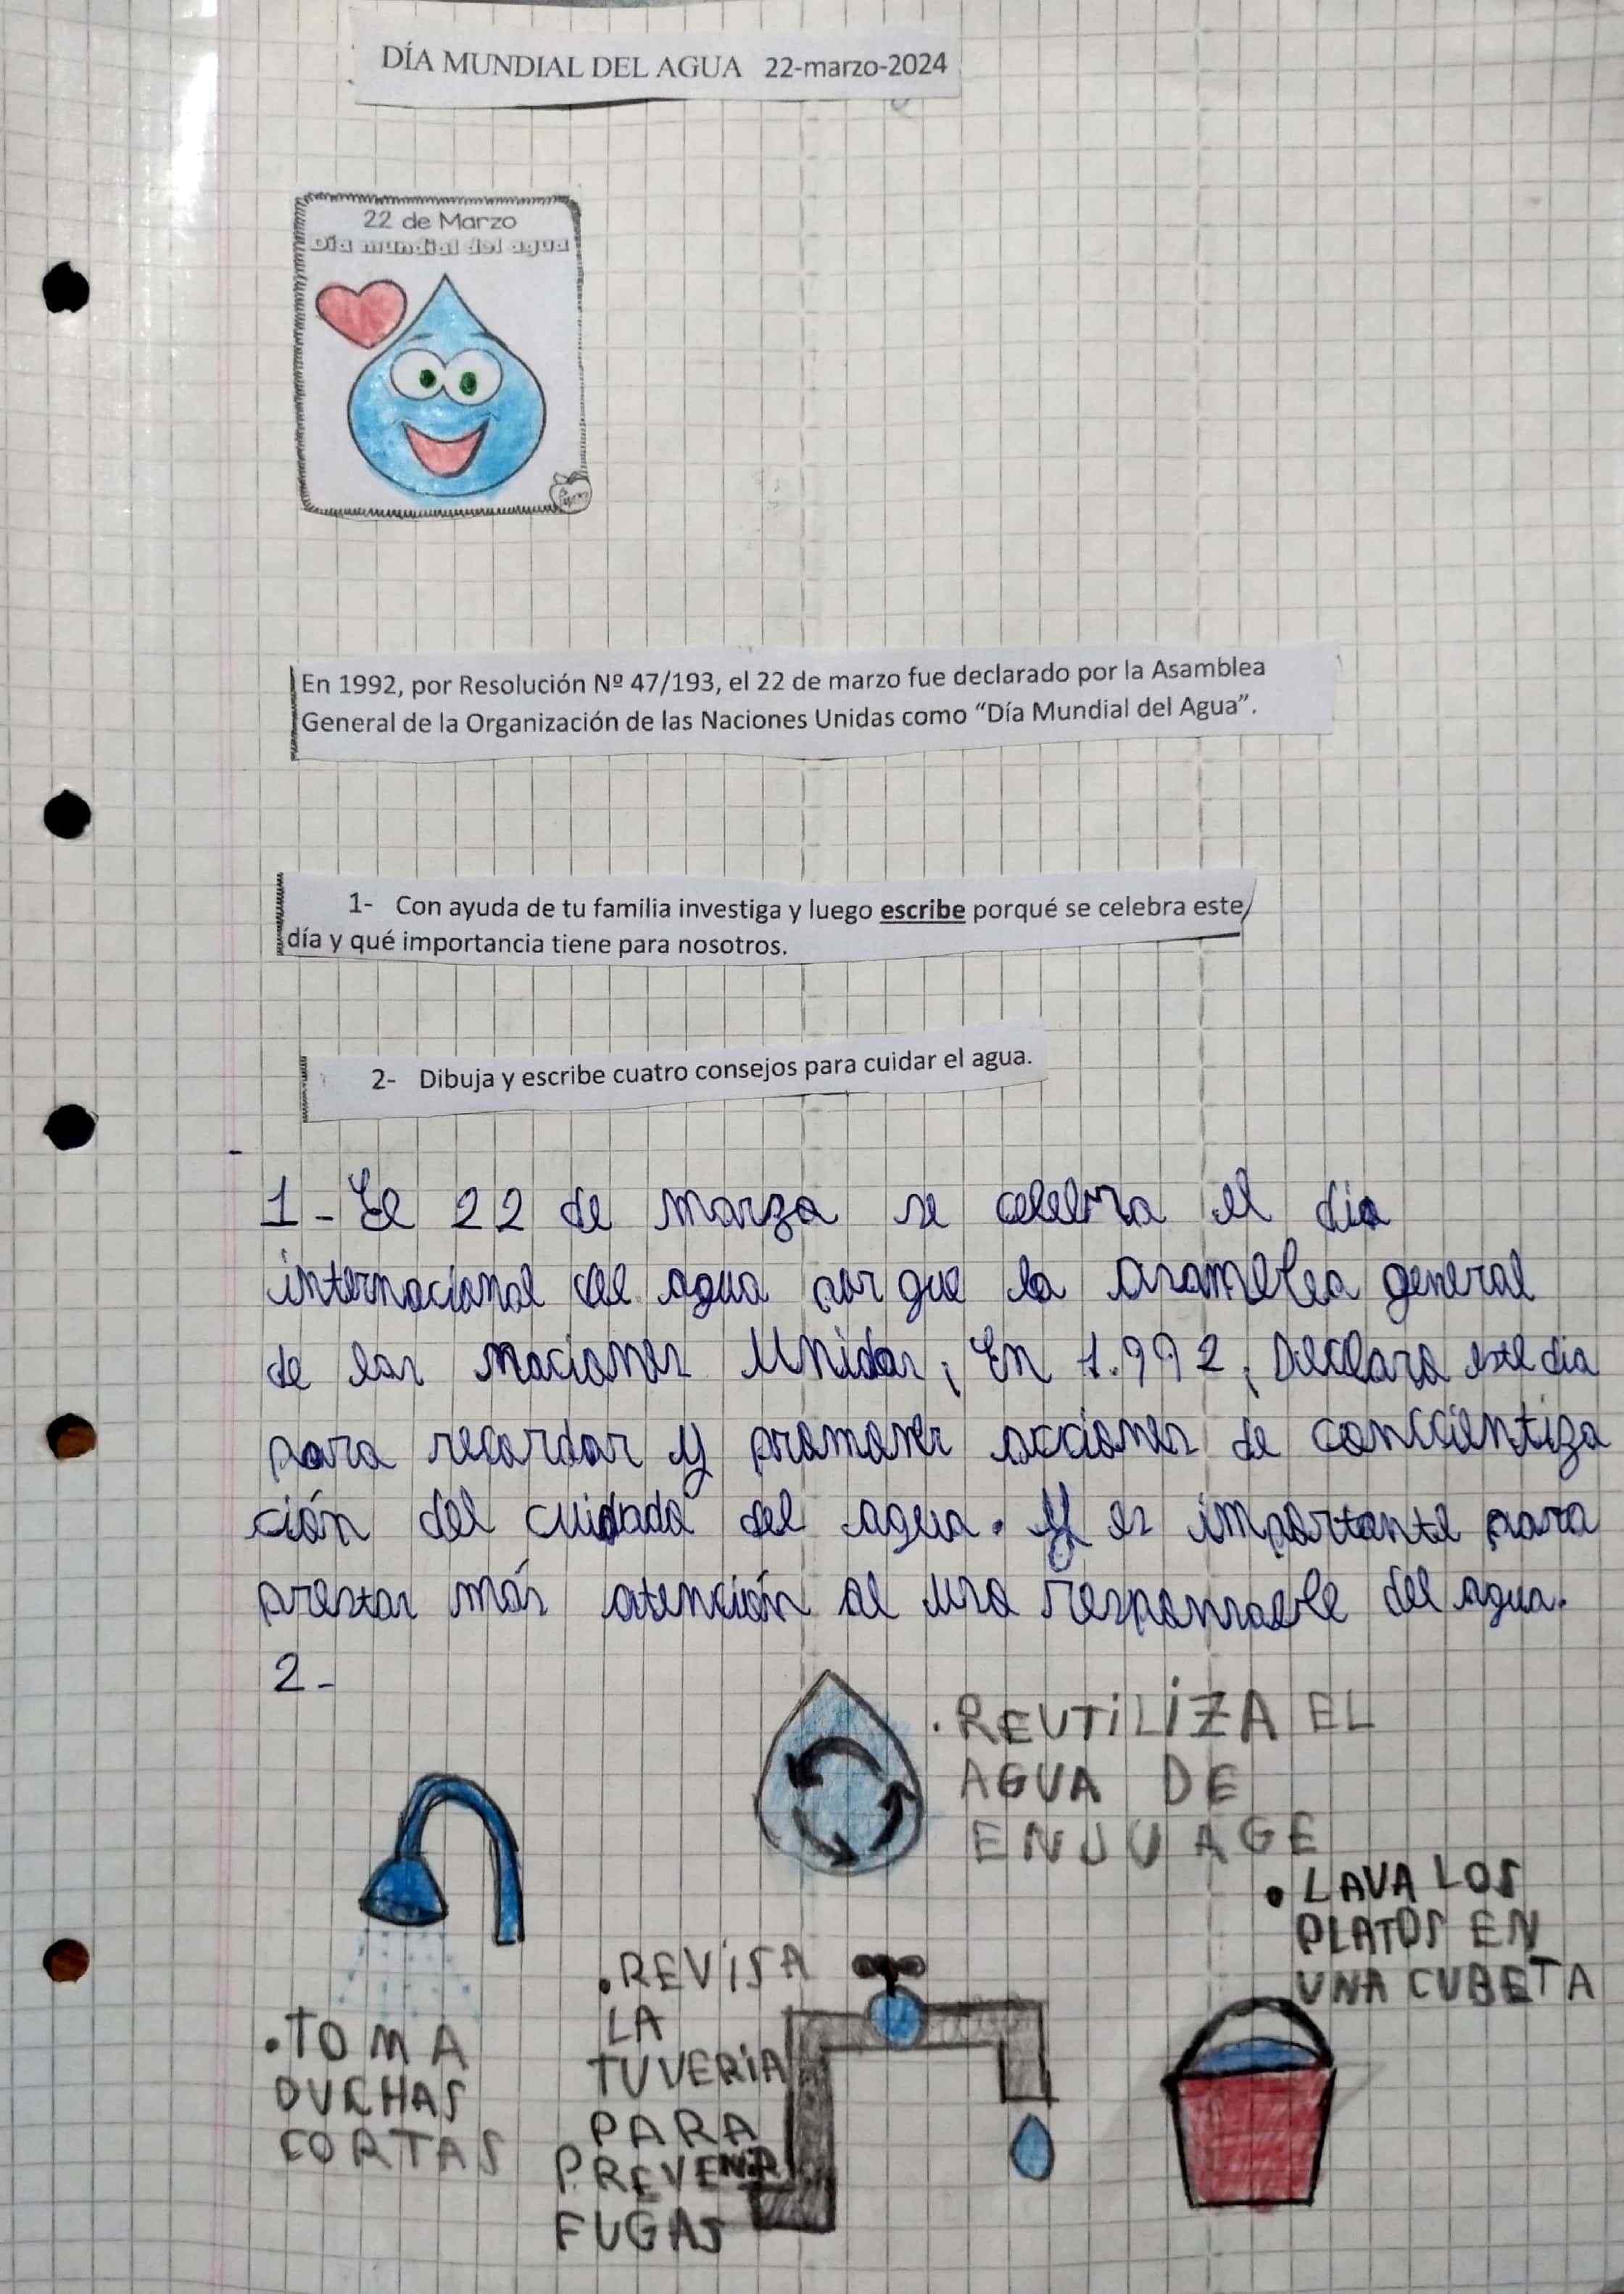 DÍA MUNDIAL DEL AGUA 22-marzo-2024
22 de Marzo
Día mundial del agua
En 1992, por Resolución Nº 47/193, el 22 de marzo fue declarado por la Asamblea
General de la Organización de las Naciones Unidas como “Día Mundial del Agua”.
1- Con ayuda de tu familia investiga y luego escribe porqué se celebra este
día y qué importancia tiene para nosotros.
2- Dibuja y escribe cuatro consejos para cuidar el agua.
1- El 22 de marzo se celebra el dia
internacional del agua por que la asamblea general
de las naciones Unidas, En 1.992, Declaro este dia
para recordar y promover acciones de concientiza
ción del cuidado del agua. Y es importante para
prestar más atención al uso responsable del agua.
2-
. REUTILIZA EL
AGUA DE
ENJUAGE
• LAVA LOS
PLATOS EN
UNA CUBETA
. REVISA
LA
TUVERIA
PARA
PREVENIR
FUGAS
. TOMA
DUCHAS
CORTAS